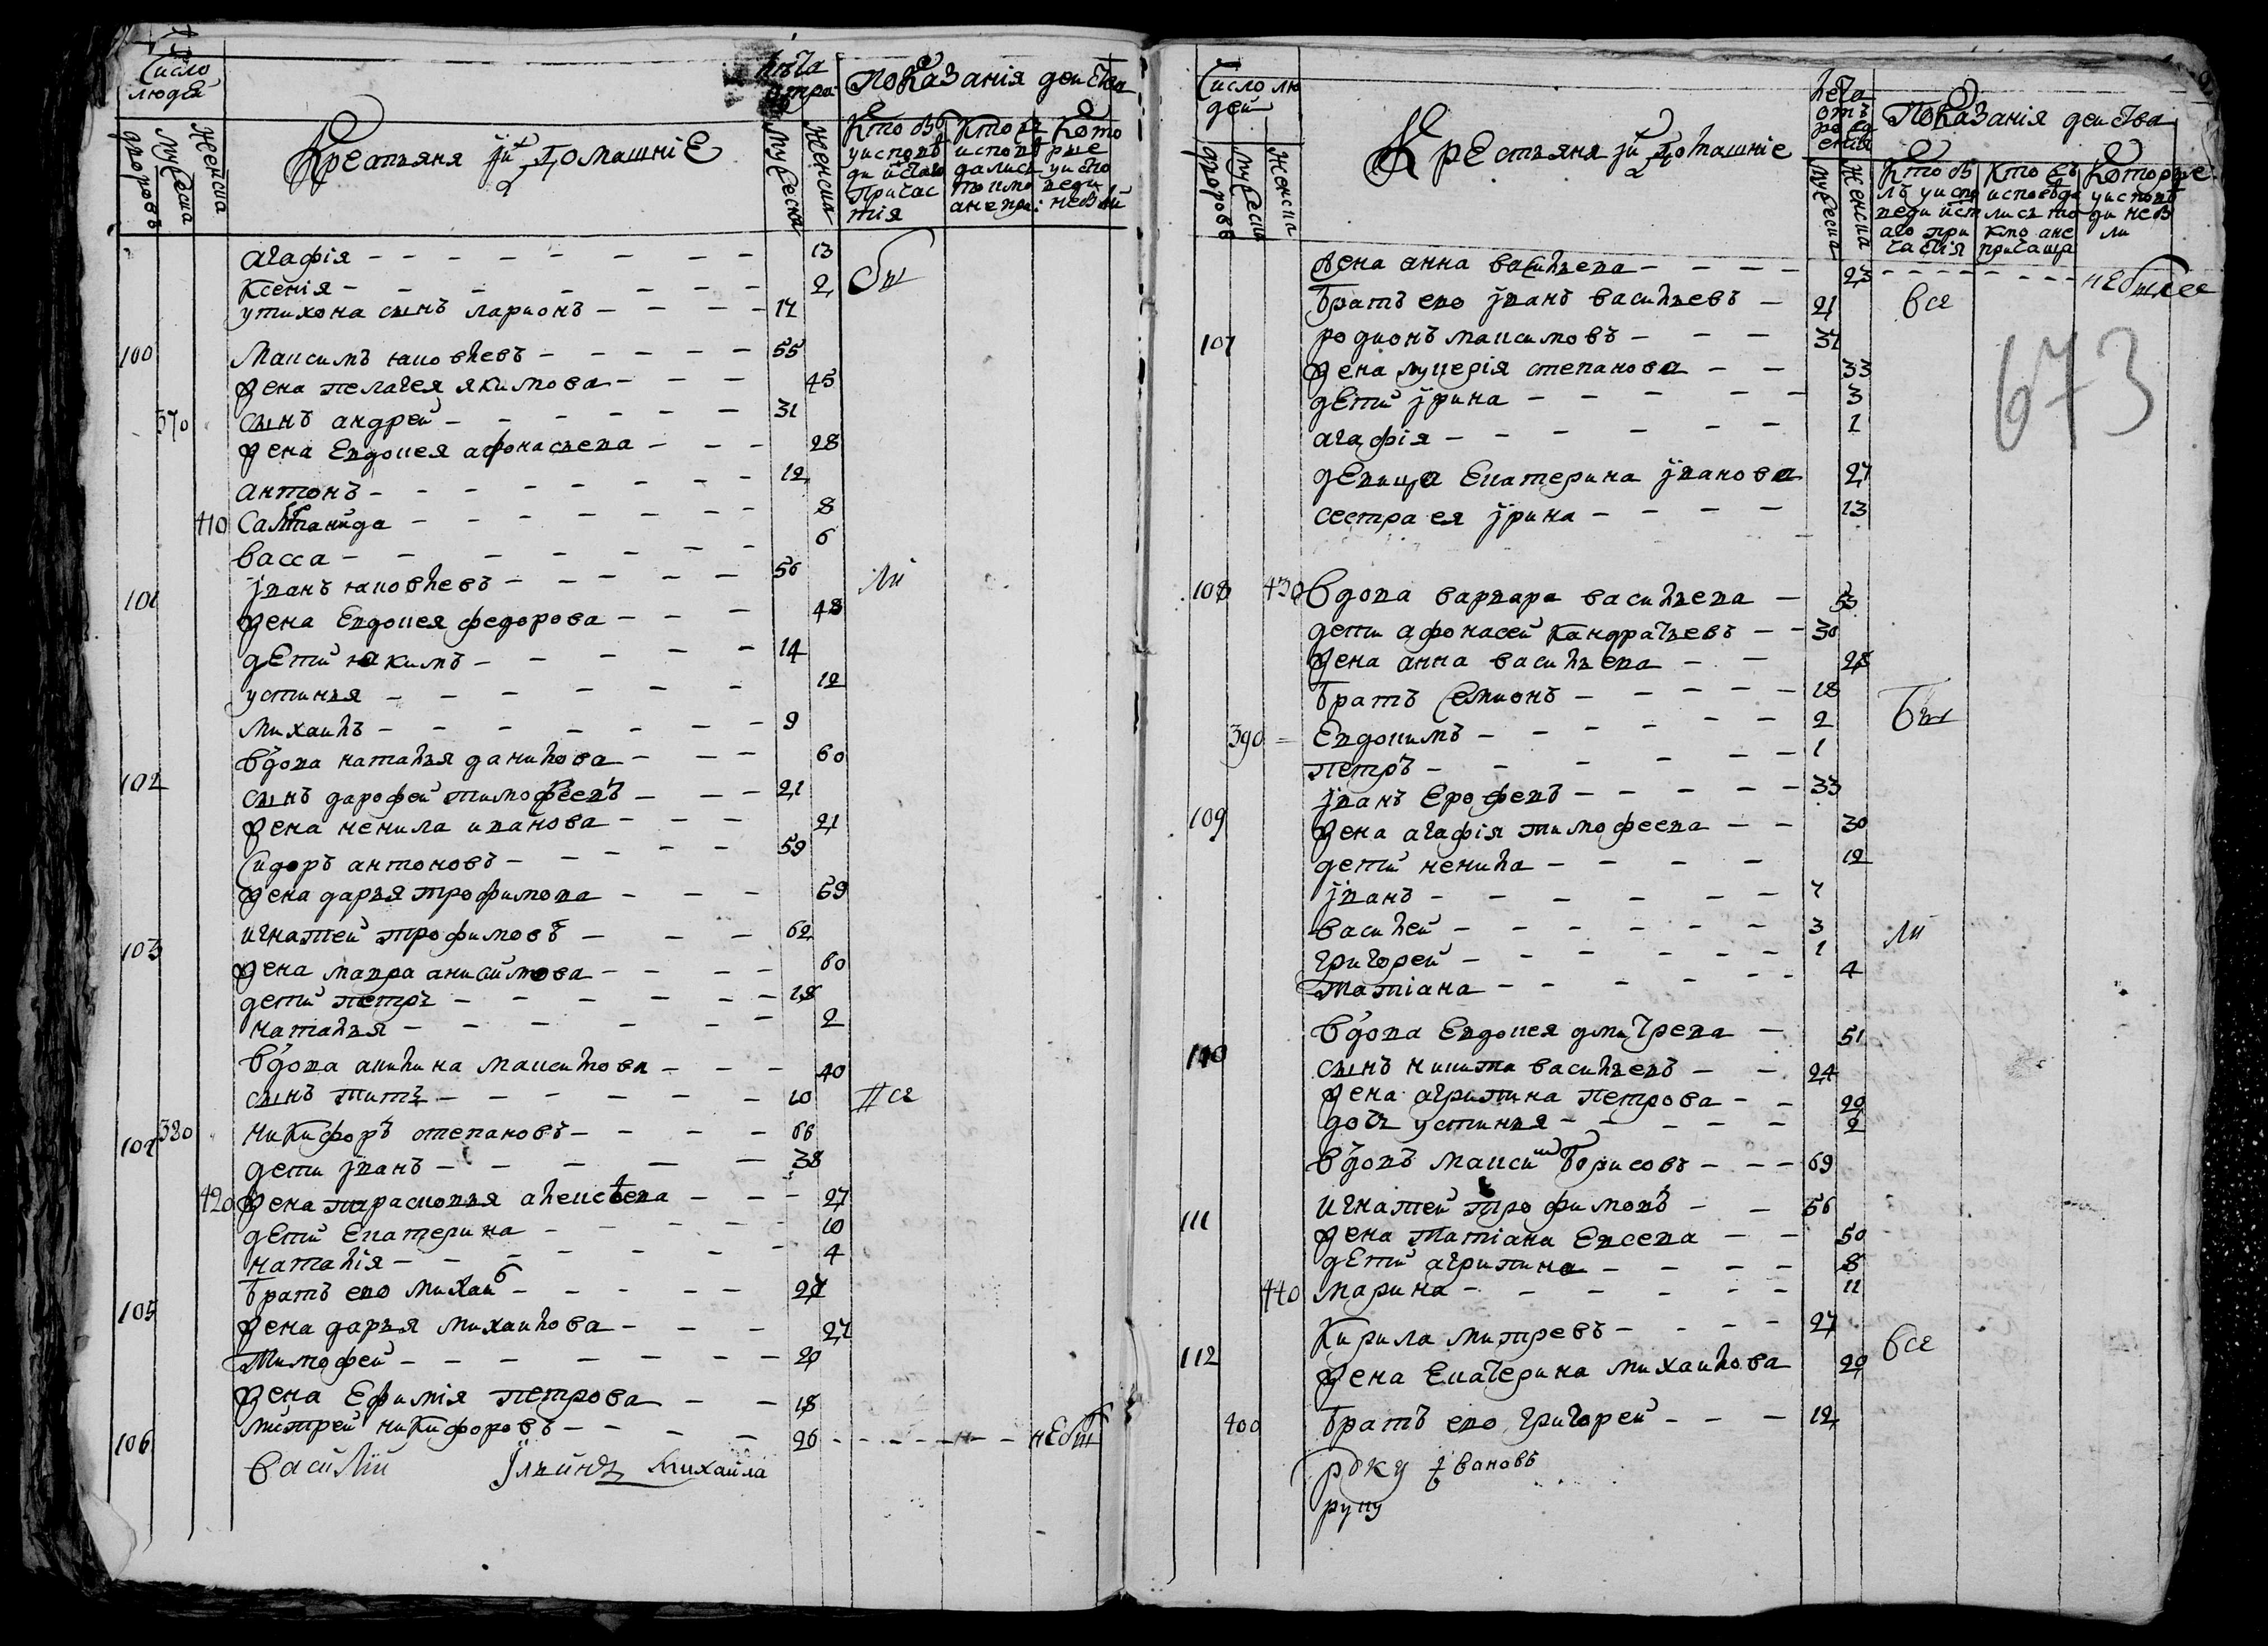 Число
людей
дворовъ
мужеска
женска
Крестьяня ї их домашніе
лѣта
мужеска
женска
Показанія действа
Кто въ
Кто
Кото
агафія - - - - - - - 13
ксенія - - - - - - - 2 бы
у тихона сынъ ларионъ - - - - 17
100 Максимъ яковлевъ - - - - - 55
жена пелагея якимова - - - 45
370 сынъ андрей - - - - - - 31
жена Евдокея афонасьева - - - 28
антонъ - - - - - - - 12
410 саломанида - - - - - - 8
васса - - - - - - - 6
101 їванъ яковлевъ - - - - - 56 ли
жена Евдокея федорова - - - 48
дети якимъ - - - - - 14
устинья - - - - - - 12
михаилъ - - - - - - - 9
102 вдова наталья данилова - - - 60
сынъ дарофей тимофеевъ - - - 21
жена ненила иванова - - - 21
Сидоръ антоновъ - - - - - 59
жена дарья трофимова - - - 69
103 игнатей трофимовъ - - - 62
жена мавра анисимова - - - - 60
дети петръ - - - - - - 18
наталья - - - - - - 2
вдова акилина максимова - - - 40
сынъ титъ - - - - - - 10 все
104 380 никифоръ степановъ - - - - 66
дети їванъ - - - - - 38
420 жена прасковья алексеева - - - 27
дети Екатерина - - - - - 10
наталія - - - - - - 4
105 братъ ево михаи - - - - - 27
жена дарья михаилова - - - 27
Тимофей - - - - - - - 20
жена Ефимія петрова - - 18
106 митрей никифоровъ - - - - 26 - - - - - - - небы
Василій Ільинъ михаила
Число лю
дей
дворовъ
мужеска
женска
Крестьяня ї их домашніе
лета
отъ
рожд
енія
мужеска
женска
Показанія действа
Кто бы
лъ у испо
веди и ст
аго при
частія
Кто
исповеда
лись то
кмо а не
причаща
Которые
у исповѣ
ди не бы
ли
жена анна васильева - - - - 23 - - - - - - - - небылсе
братъ ево їванъ васильевъ - 21 все
107 родионъ максимовъ - - - 37
жена лукерія степанова - - 33
дети їрина - - - - - 3
агафія - - - - - - 1
673
девица Екатерина їванова 27
сестра ея їрина - - - - 13
108 430 вдова варвара васильева - 53
дети афонасей Кандратьевъ - - 30
жена анна васильева - - 28
братъ Семионъ - - - - - 18
390 Евдокимъ - - - - - 2 бы
петръ - - - - - - 1
109 їванъ Ерофеевъ - - - - - 33
жена агафія тимофеева - - 30
дети ненила - - - - 12
їванъ - - - - - - 7
василей - - - - - - 3 ли
григорей - - - - - - 1
Татіана - - - - - - 4
110 вдова Евдокея дмитрева - 51
сынъ никита васильевъ - - 24
жена агрипина петрова - - 20
дочь устинья - - - - - 2
вдовъ максимъ борисовъ - - - 69
111 игнатей трофимовъ - - 56
жена Татіана Евсева - - 50
дети агрипина - - - - 8
440 марина - - - - - - 11
112 Кирила митревъ - - - - 27 все
жена Екатерина михаилова 20
400 братъ ево григорей - - - 12
руку ївановъ